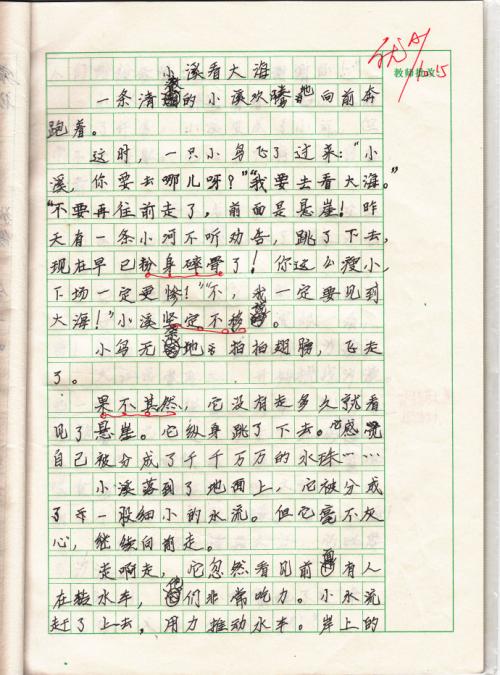 优 A
教师批改
小溪看大海
一条清澈的小溪欢腾地向前奔
跑着。
这时，一只小鸟飞了过来：“小
溪，你要去哪儿呀？”“我要去看大海。”
“不要再往前走了，前面是悬崖！昨
天有一条小河不听劝告，跳了下去，
现在早已粉身碎骨了！你这么瘦小，
下场一定更惨！”“不，我一定要见到
大海！”小溪坚定不移的。
小鸟无奈地拍拍翅膀，飞走
了。
果不其然，它没有走多久就看
见了悬崖。它纵身跳了下去。它感觉
自己被分成了千千万万的水珠……
小溪落到了地面上，它被分成
了一股细小的水流。但它毫不灰
心，继续向前走。
走啊走，它忽然看见前面有人
在转水车，他们非常吃力。小水流
赶了上去，用力推动水车。岸上的